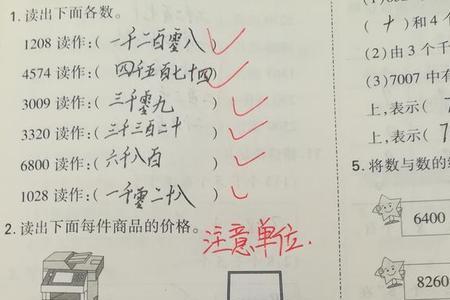 1.读出下面各数。
1208 读作:( 一千二百零八 )
4574 读作:( 四千五百七十四 )
3009 读作:( 三千零九 )
3320 读作:( 三千三百二十 )
6800 读作:( 六千八百 )
1028 读作:( 一千零二十八 )
2.读出下面每件商品的价格。
注意单位.
( 十 )和 4 个
(2)由 3 个千
(3)7007 中有
上,表示( 7
上,表示( 7
5.将数与数的
6400
8260